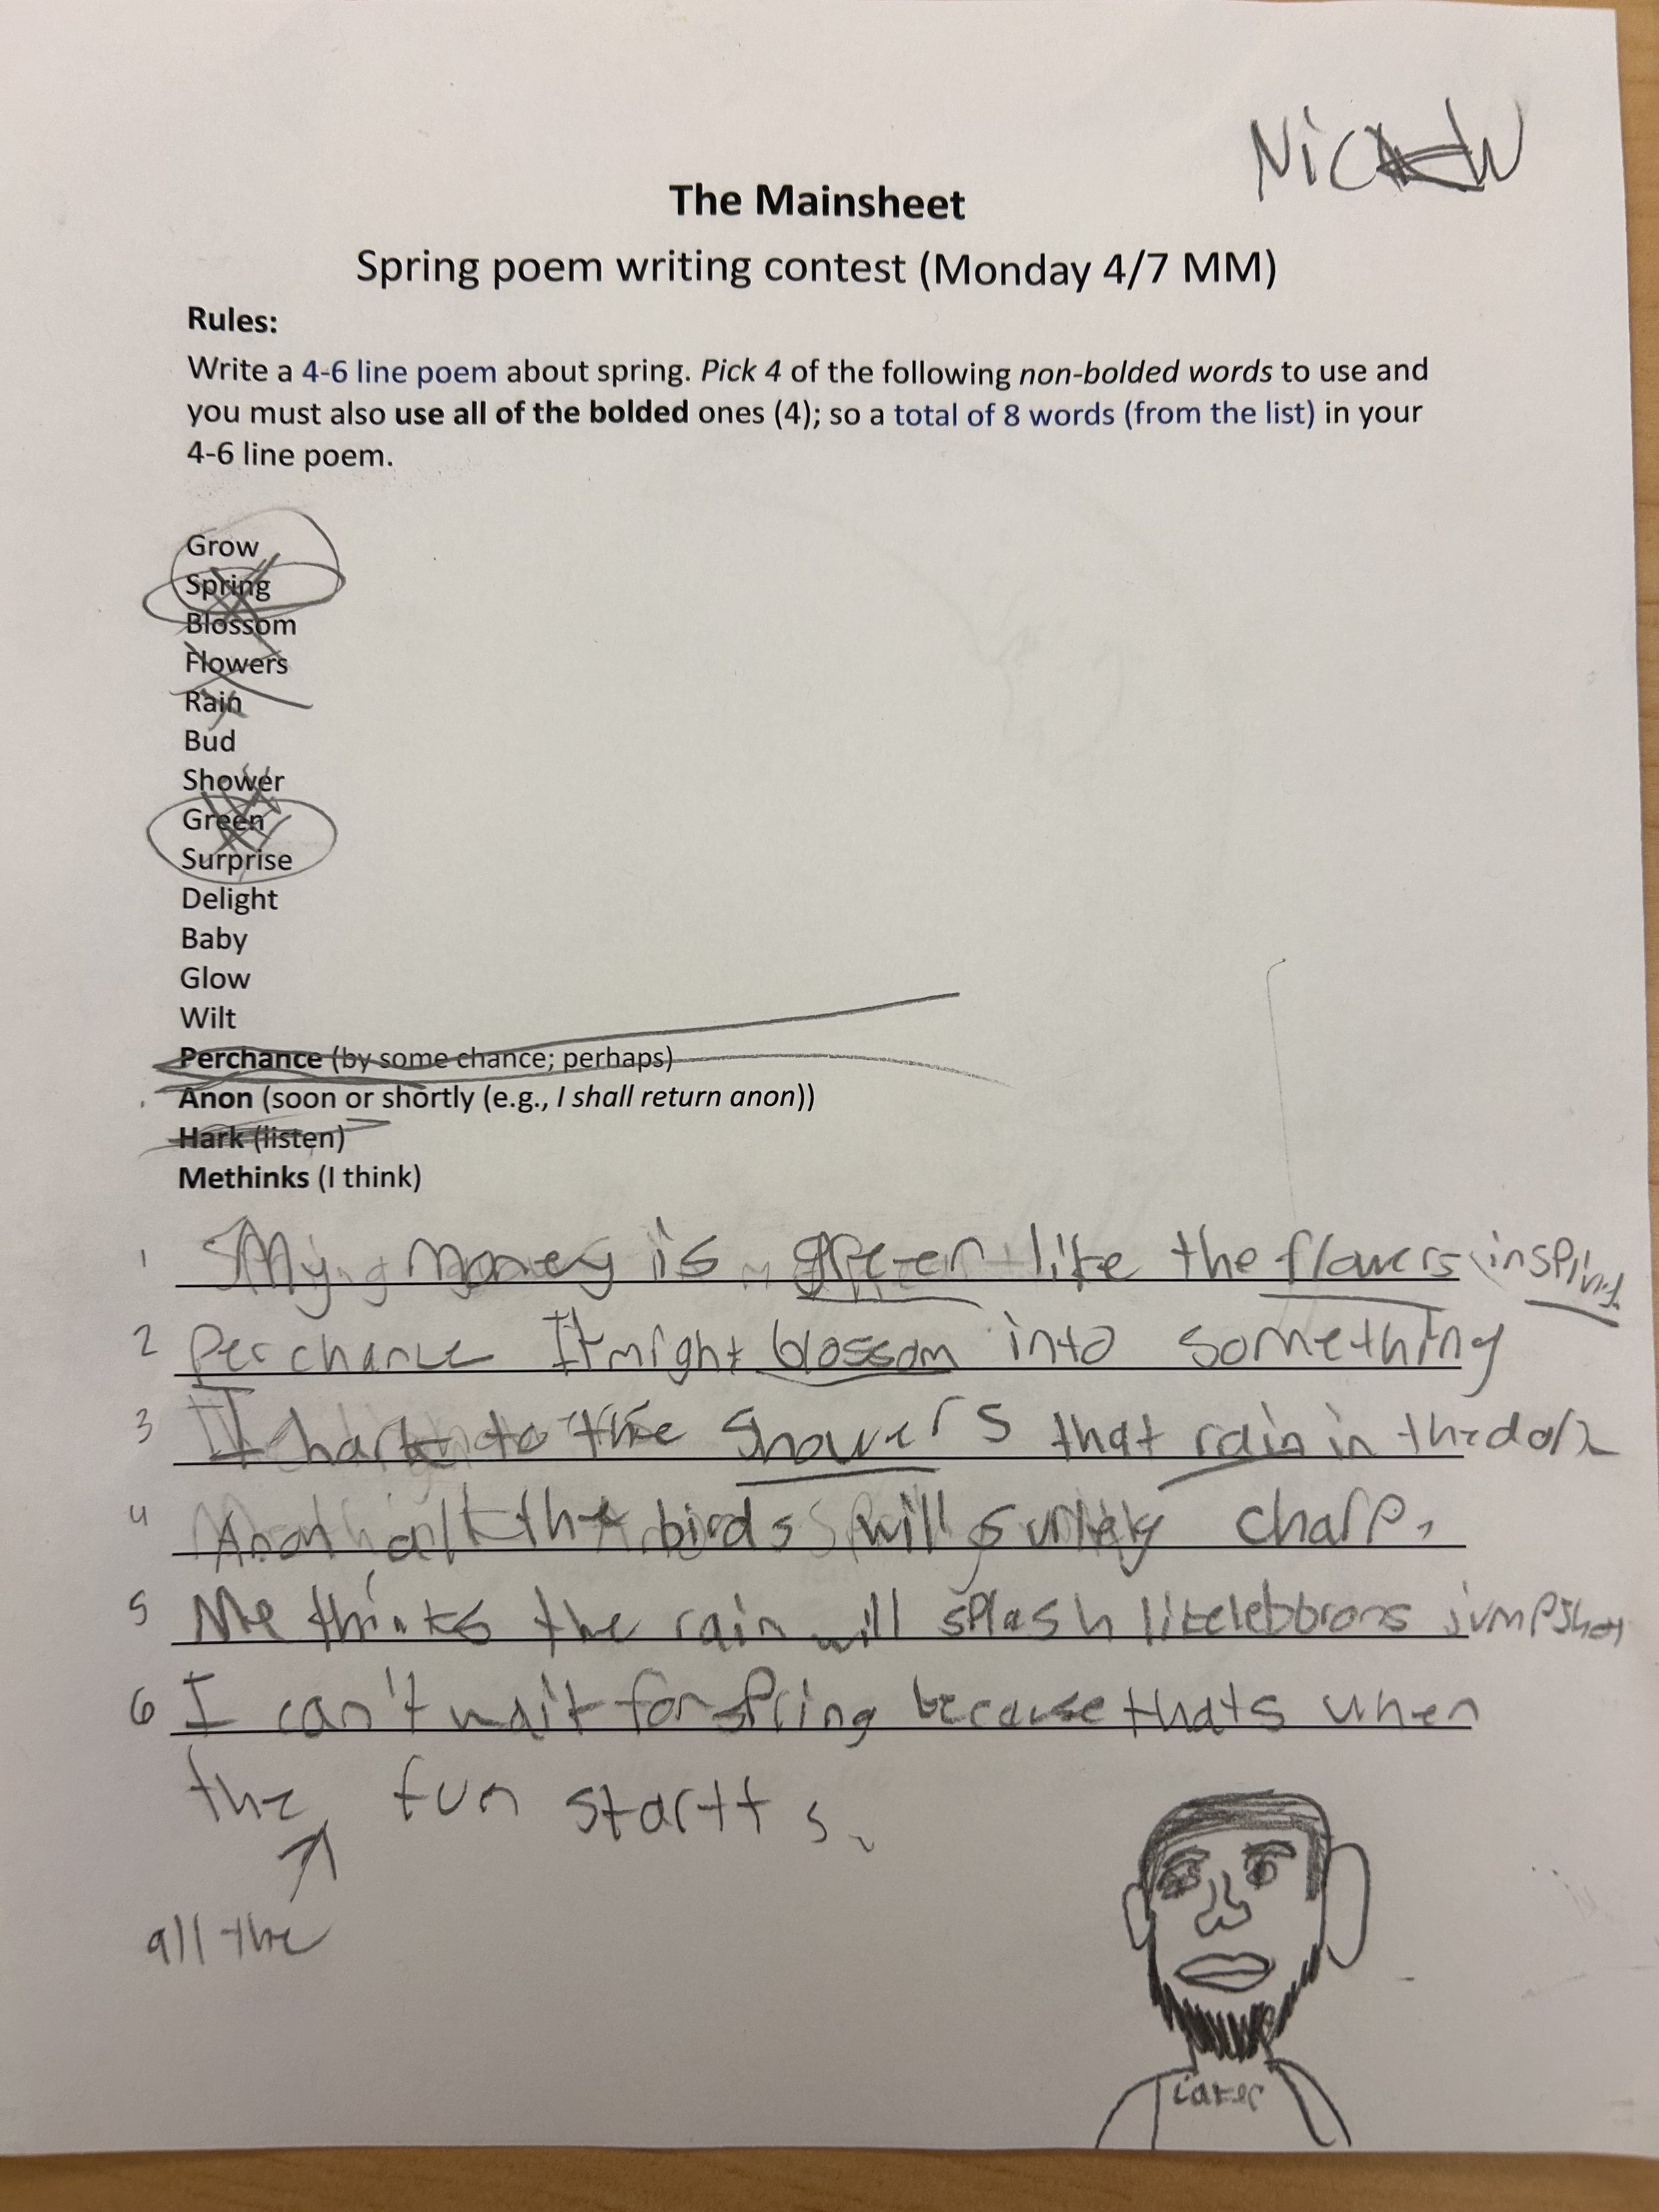 Nick W
The Mainsheet
Spring poem writing contest (Monday 4/7 MM)
Rules:
Write a 4-6 line poem about spring. Pick 4 of the following non-bolded words to use and
you must also use all of the bolded ones (4); so a total of 8 words (from the list) in your
4-6 line poem.
Grow
Spring
Blossom
Flowers
Rain
Bud
Shower
Green
Surprise
Delight
Baby
Glow
Wilt
Perchance (by some chance; perhaps)
Anon (soon or shortly (e.g., I shall return anon))
Hark (listen)
Methinks (I think)
1 My money is green like the flowers in spring
2 Perchance It might blossom into something
3 I hark to the showers that rain in the dark
4 Anon all the birds will surley charp.
5 Me thinks the rain will splash like lebrons jumpshot
6 I can't wait for spring because thats when
the fun startts.
all the